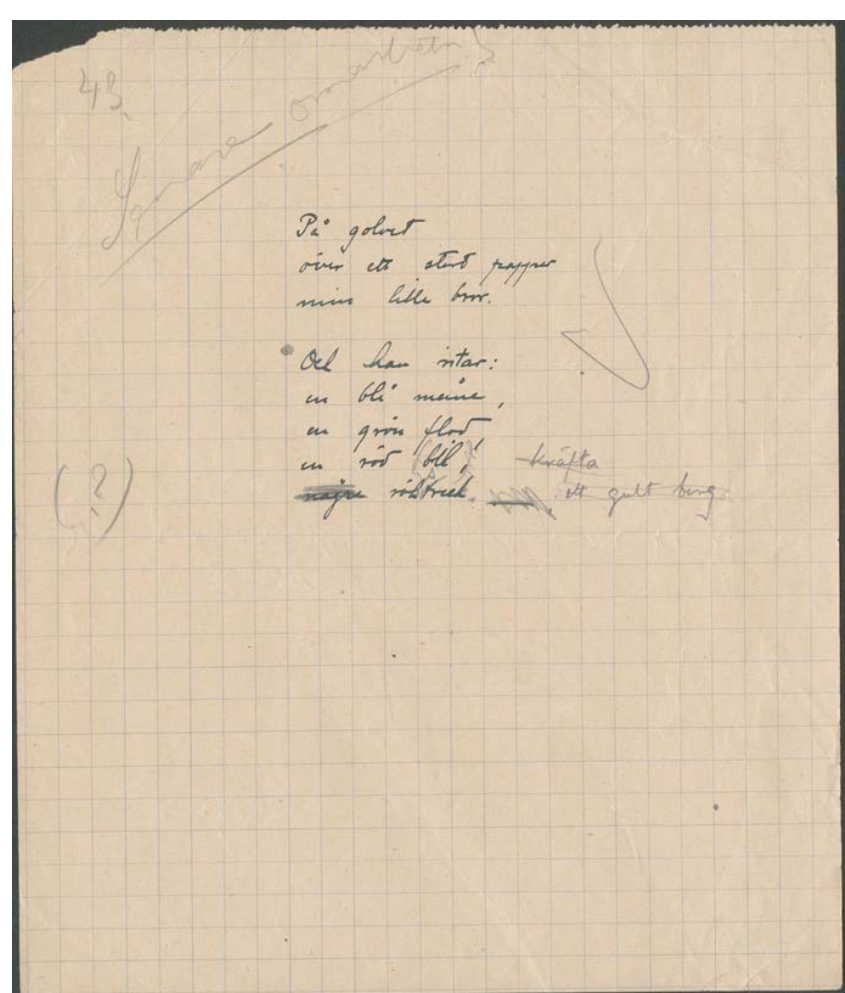 43.
omarbeta
På golvet
över ett stort papper
min lille bror.
Och han ritar:
en blå måne,
en grön flod,
en röd bil, kräfta
några rökstreck. ett gult berg
(?)